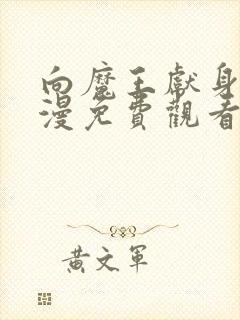 向魔王獻身
漫免費觀看
黃文軍